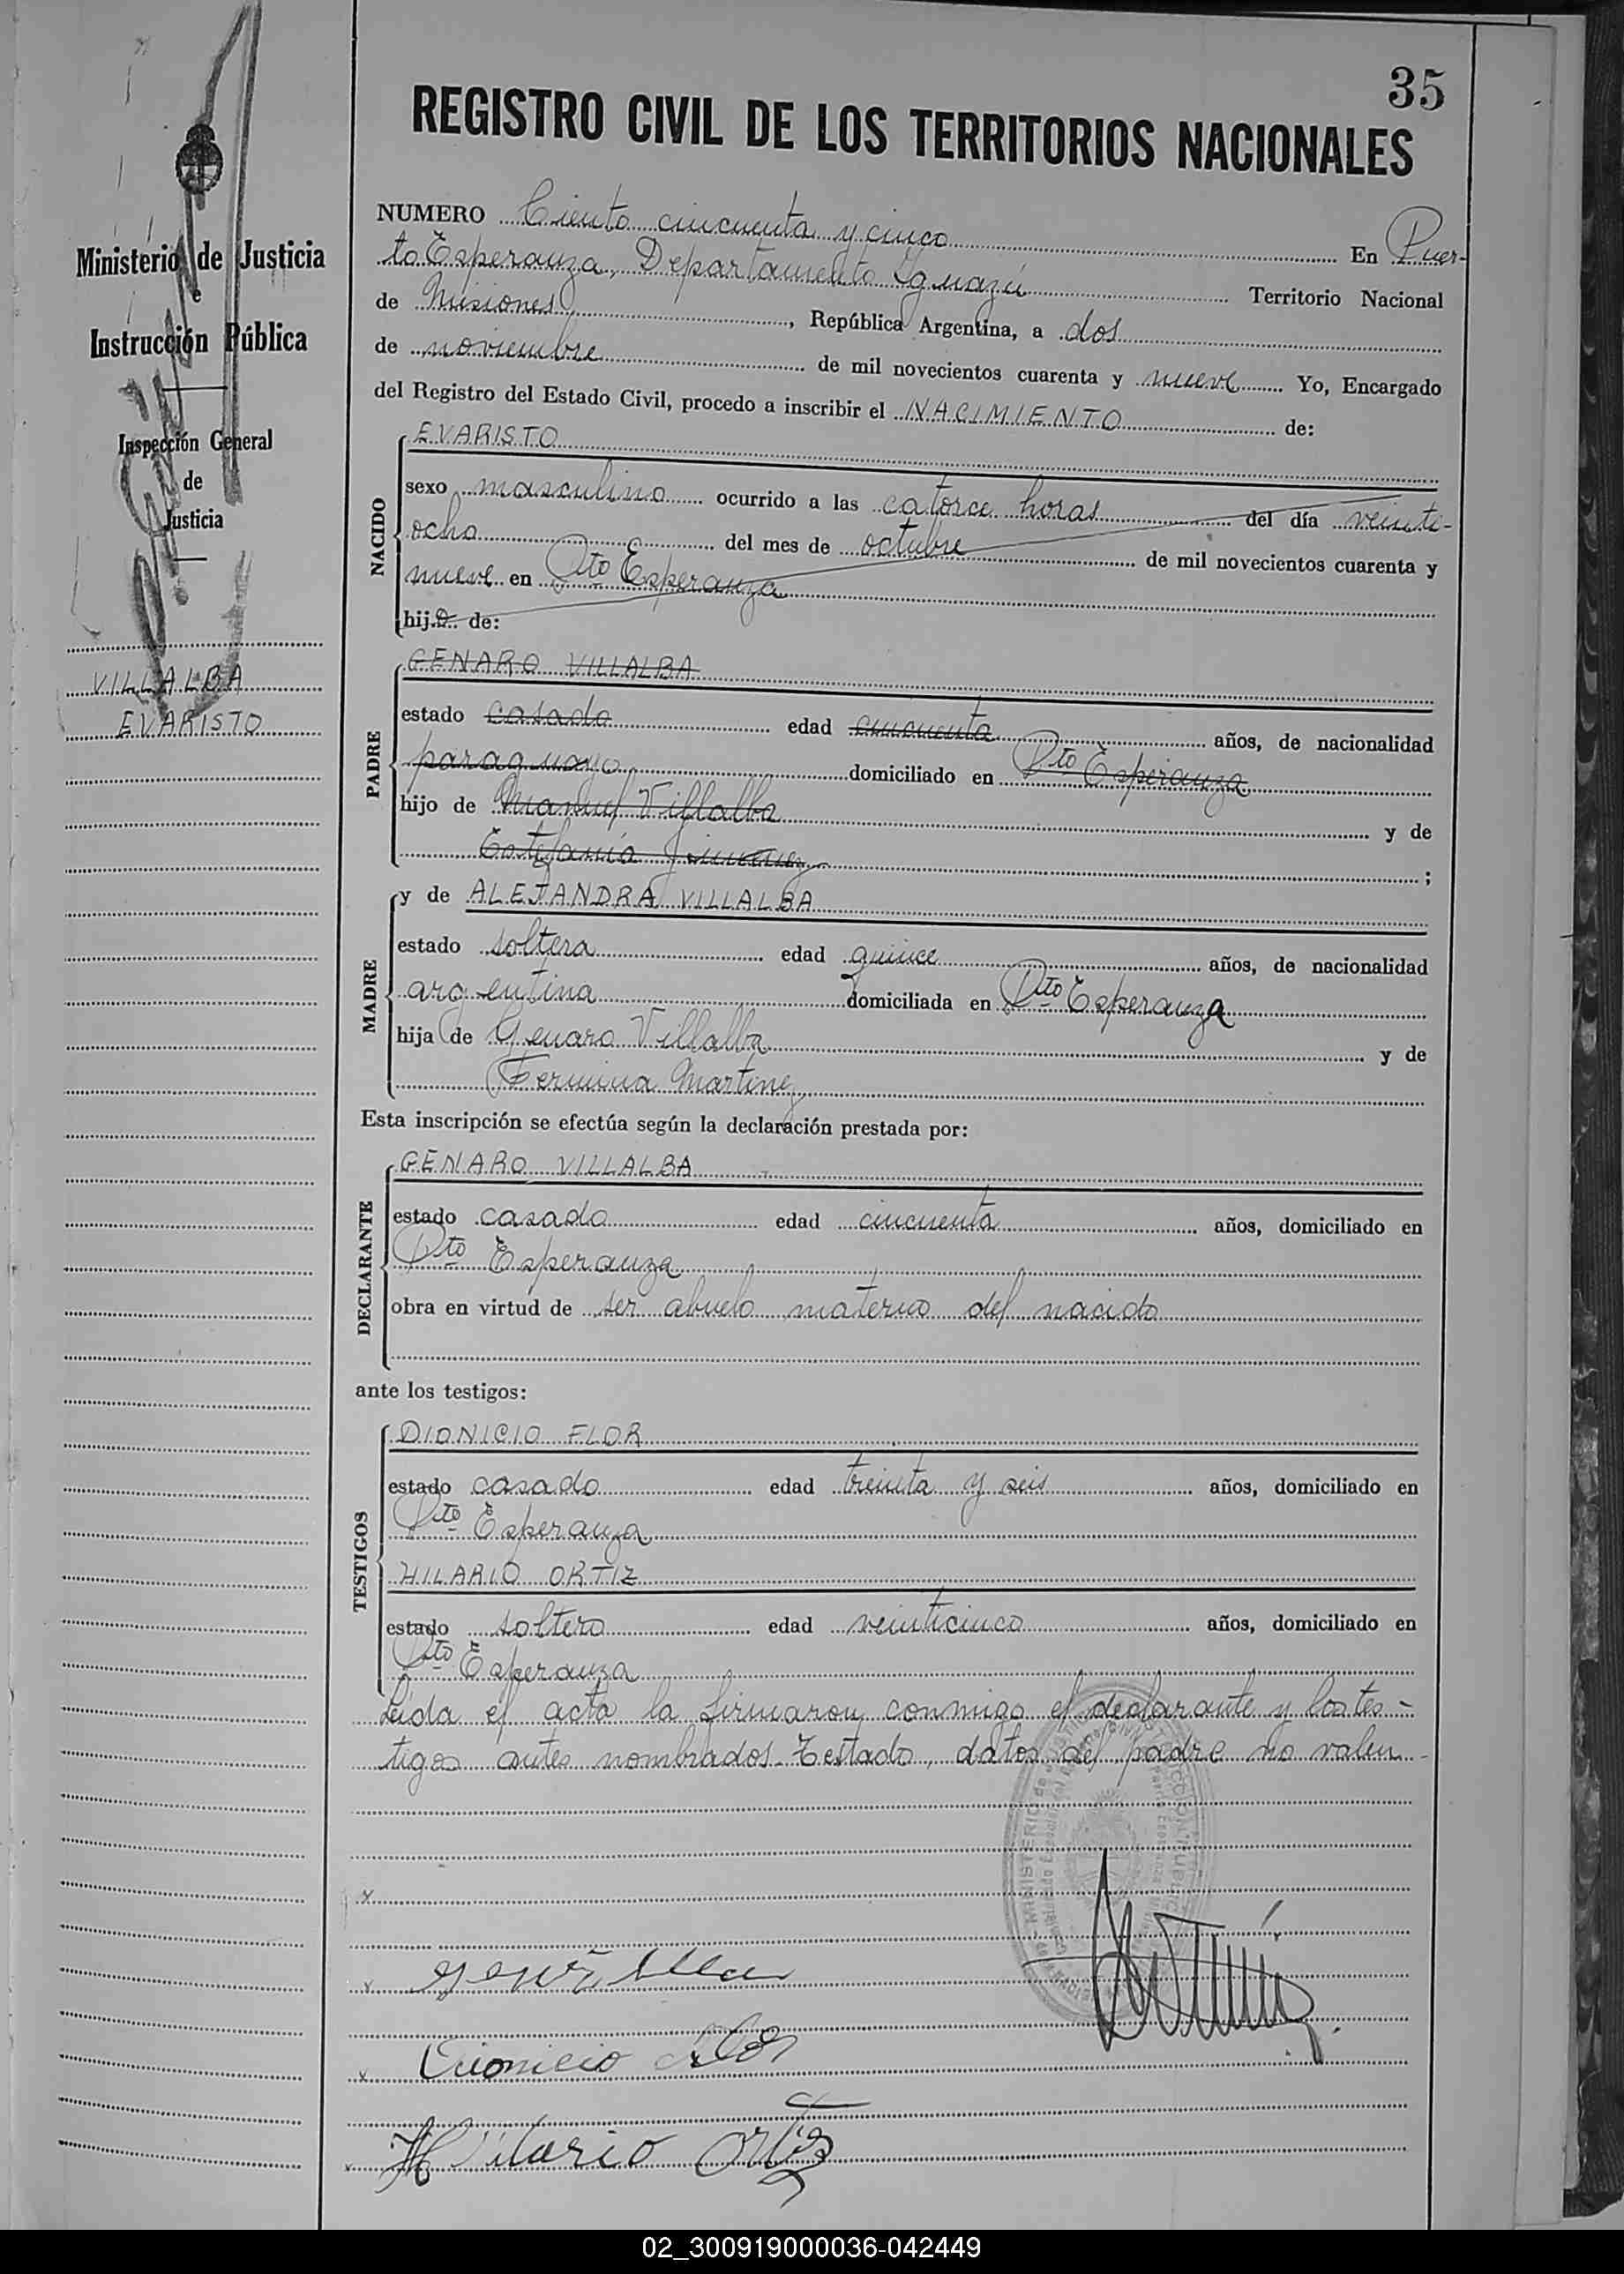 35
REGISTRO CIVIL DE LOS TERRITORIOS NACIONALES
Ministerio de Justicia
e
Instrucción Pública
Inspección General
de
Justicia
VILLALBA
EVARISTO
NUMERO Ciento cincuenta y cinco En Puer-
to Esperanza, Departamento Iguazú Territorio Nacional
de Misiones, República Argentina, a dos
de noviembre de mil novecientos cuarenta y nueve Yo, Encargado
del Registro del Estado Civil, procedo a inscribir el NACIMIENTO de:
NACIDO
EVARISTO
sexo masculino ocurrido a las catorce horas del día veinti-
ocho del mes de octubre de mil novecientos cuarenta y
nueve en Pto Esperanza
hijo de:
PADRE
GENARO VILLALBA
estado casado edad cincuenta años, de nacionalidad
paraguayo domiciliado en Pto Esperanza
hijo de Manuel Villalba y de
Estefanía Jimenez ;
MADRE
y de ALEJANDRA VILLALBA
estado soltera edad quince años, de nacionalidad
argentina domiciliada en Pto Esperanza
hija de Genaro Villalba y de
Fermina Martinez
Esta inscripción se efectúa según la declaración prestada por:
DECLARANTE
GENARO VILLALBA
estado casado edad cincuenta años, domiciliado en
Pto Esperanza
obra en virtud de ser abuelo materno del nacido
ante los testigos:
TESTIGOS
DIONICIO FLOR
estado casado edad treinta y seis años, domiciliado en
Pto Esperanza
HILARIO ORTIZ
estado soltero edad veinticinco años, domiciliado en
Pto Esperanza
Leída el acta la firmaron conmigo el declarante y los tes-
tigos antes nombrados. Testado, datos del padre no valen-
Dionicio Flor
Hilario Ortiz
02_300919000036-042449